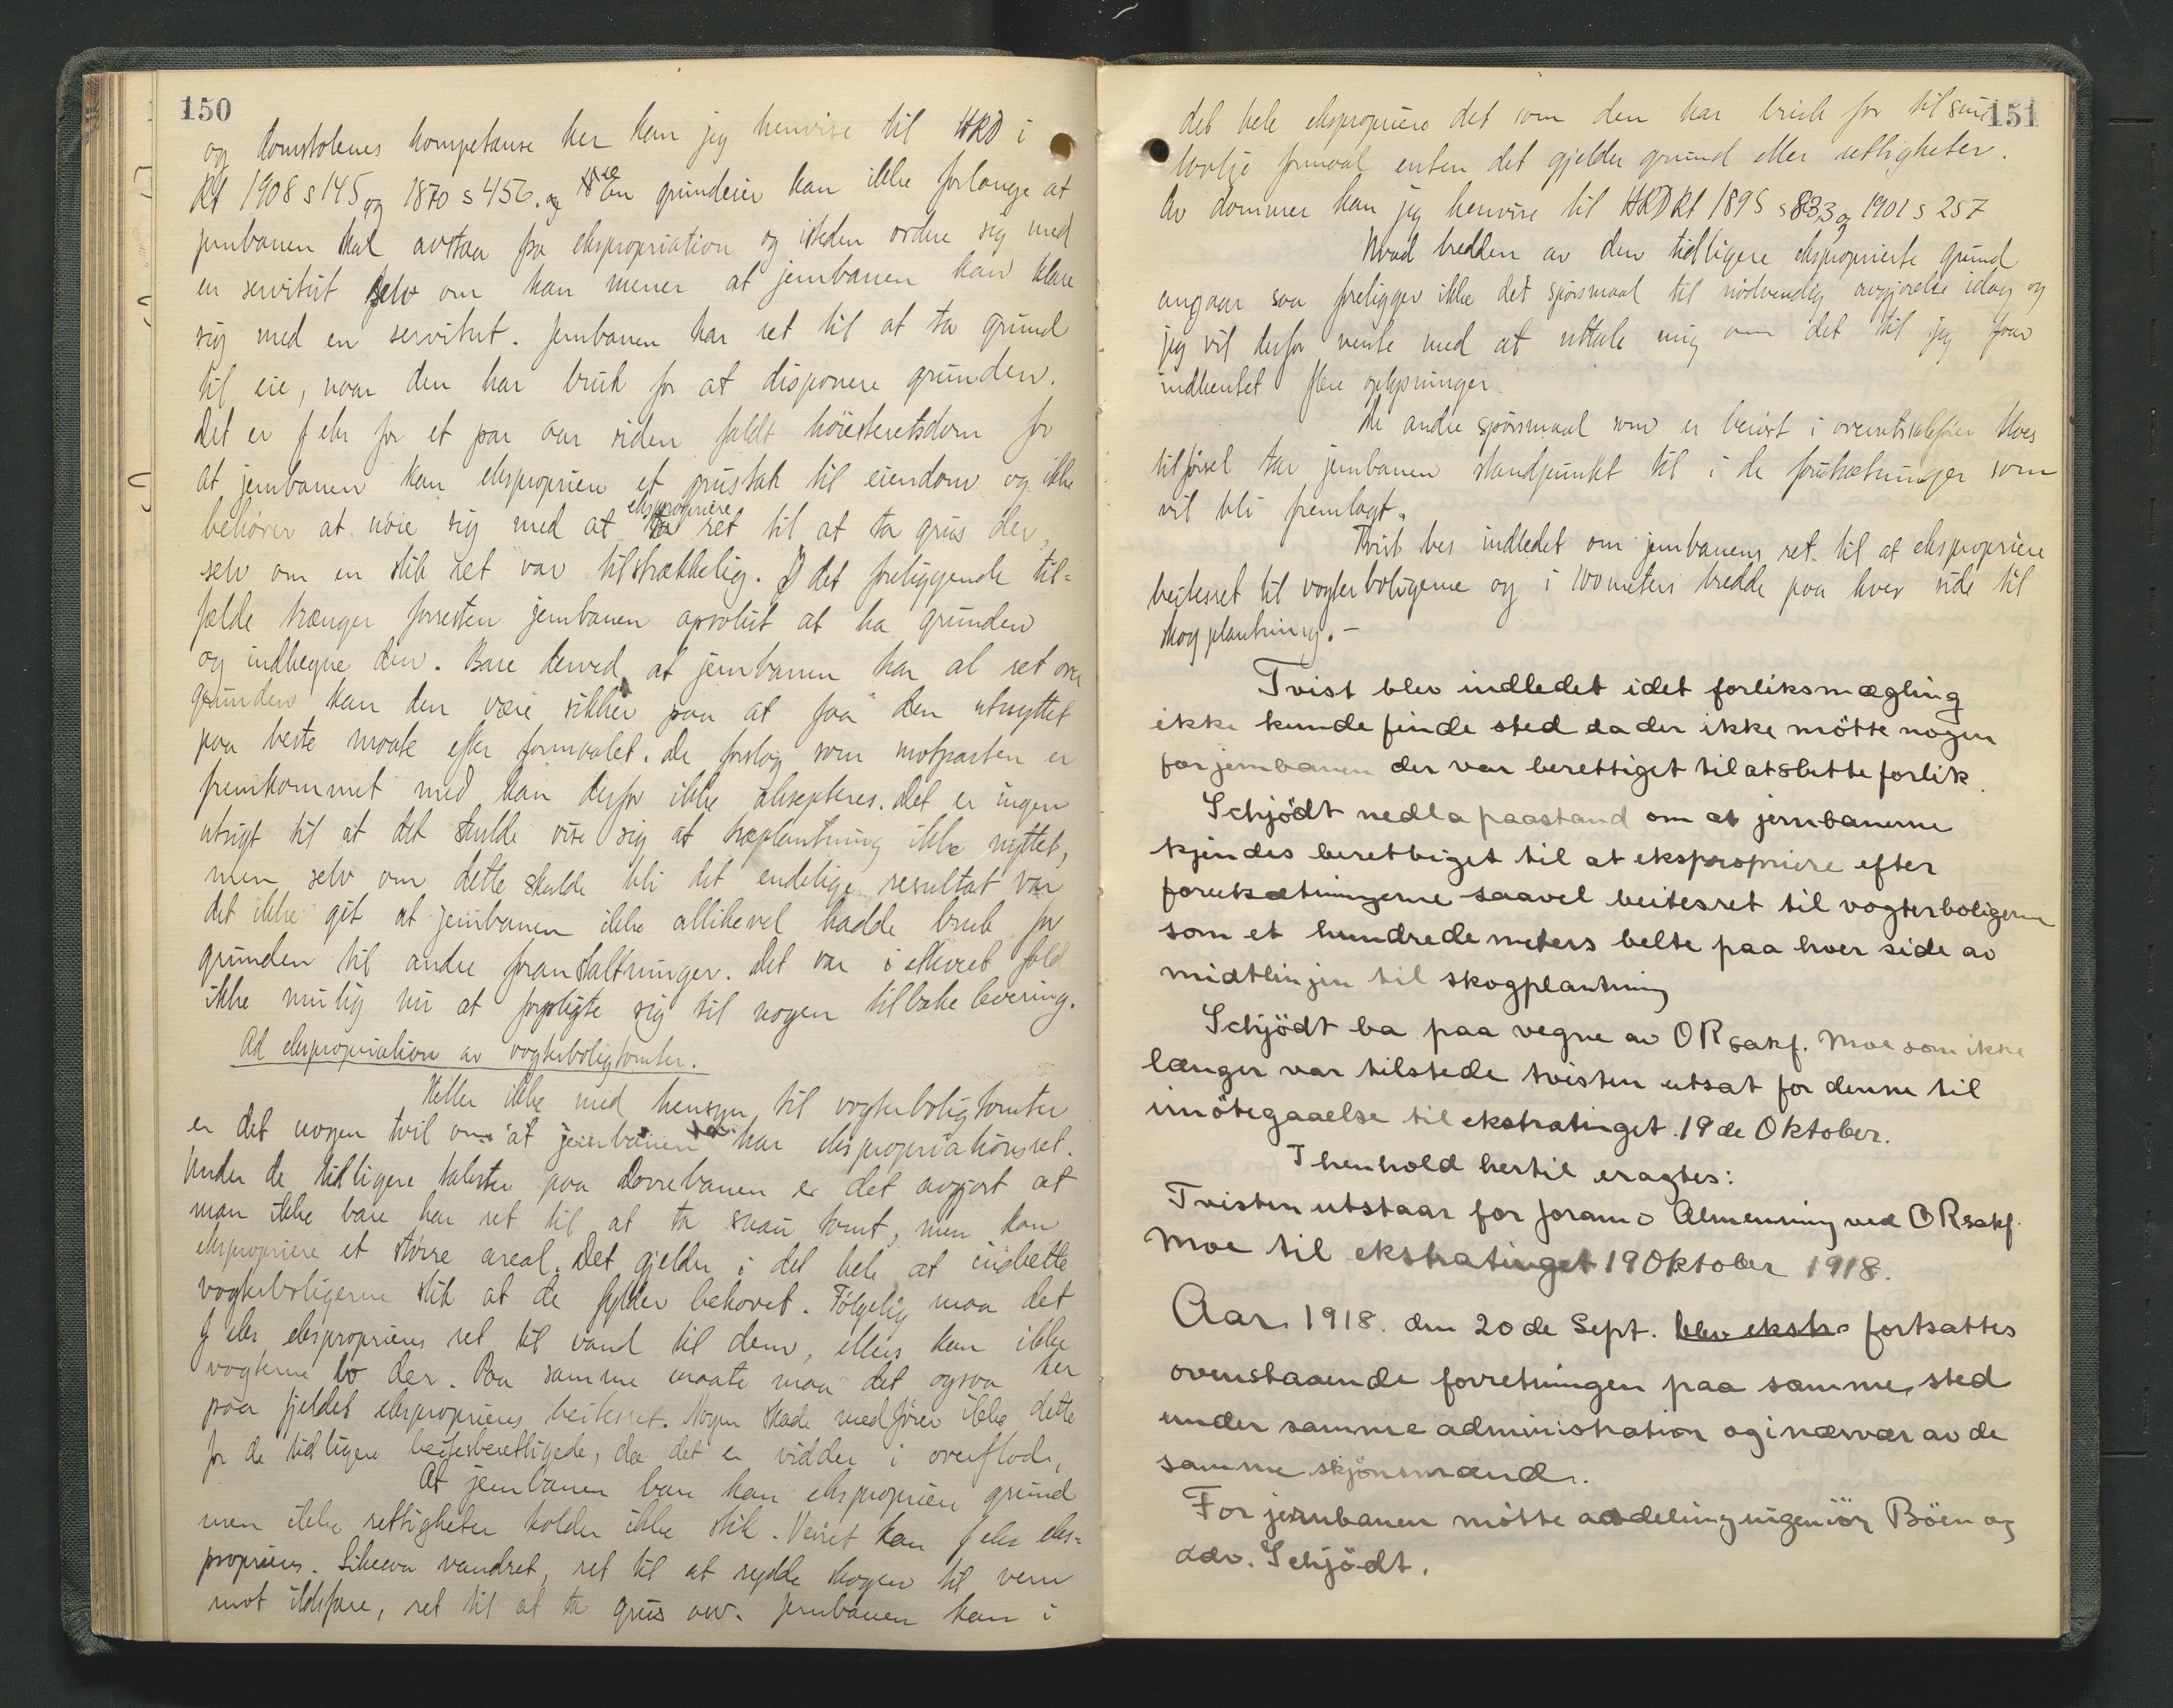 150
og domstolenes kompetanse her kan jeg henvise til HRD i
Rt 1908 s 145 og 1870 s 456. og En grundeier kan ikke forlange at
jernbanen skal avstaa fra ekspropriation og isteden ordne sig med
en servitut selv om han mener at jernbanen kan klare
sig med en servitut. Jernbanen har ret til at ta grund
til eie, naar den har bruk for at disponere grunden.
Det er f eks for et par aar siden faldt höiesteretsdom for
at jernbanen kan ekspropriere et grustak til eiendom og ikke
behöver at nöie sig med at ekspropriere ret til at ta grus der,
selv om en slik ret var tilstrækkelig. I det foreliggende til=
fælde trænger forresten jernbanen absolut at ha grunden
og indhegne den. Bare derved at jernbanen har al ret over
grunden kan den være sikker paa at faa den utnyttet
paa beste maate efter formaalet. De forslag som motparten er
fremkommet med kan derfor ikke aksepteres. Det er ingen
utsigt til at det skulde vise sig at træplantning ikke nyttet,
men selv om dette skulde bli det endelige resultat var
det ikke git at jernbanen ikke allikevel hadde bruk for
grunden til andre foranstaltninger. Det var i ethvert fald
ikke mulig nu at forpligte sig til nogen tilbakelevering.
Ad ekspropriation av vogterboligtomter.
Heller ikke med hensyn til vogterboligtomter
er det nogen tvil om at jernbanen har ekspropriationsret.
Under de tidligere takster paa Dovrebanen er det avgjort at
man ikke bare har ret til at ta snau tomt, men kan
ekspropriere et större areal. Det gjelder i det hele at utstette
vogterboligerne slik at de fylder behovet. Fölgelig maa det
f eks eksproprieres ret til vand til dem, ellers kan ikke
vogterne bo der. Paa samme maate maa det ogsaa her
paa fjeldet eksproprieres beitesret. Nogen skade medförer ikke dette
for de tidligere beitesberettigede, da det er vidder i overflod.
At jernbanen bare kan ekspropriere grund
men ikke rettigheter holder ikke stik. Veiret kan f eks eks=
proprieres. Likesaa vandret, ret til at rydde skogen til vern
mot ildsfare, ret til at ta grus osv. Jernbanen kan i
151
det hele ekspropriere det som den har bruk for til sine
lovlje formaal enten det gjelder grund eller rettigheter.
Av dommer kan jeg henvise til HRD Rt 1895 s 833 og 1901 s 257
Hvad bredden av den tidligere eksproprierte grund
angaar saa foreligger ikke det spörsmaal til nödvendig avgjörelse idag og
jeg vil derfor vente med at uttale mig om det til jeg faar
indhentet flere oplysninger.
De andre spörsmaal som er berört i overretssakförer Moes
tilförsel tar jernbanen standpunkt til i de forutsætninger som
vil bli fremlagt.
Tvist bes indledet om jernbanens ret til at ekspropriere
beitesret til vogterboligerne og i 100 meters bredde paa hver side til
skogplantning. -
Tvist blev indledet idet forliksmægling
ikke kunde finde sted da der ikke mötte nogen
for jernbanen der var berettiget til at slutte forlik.
Schjödt nedla paastand om at jernbanerne
kjendes berettiget til at ekspropriere efter
forutsætningerne saavel beitesret til vogterboligerne
som et hundrede meters belte paa hver side av
midtlinjen til skogplantning
Schjödt ba paa vegne av O R sakf. Moe som ikke
længer var tilstede tvisten utsat for denne til
imötegaaelse til ekstratinget 19de Oktober.
I henhold hertil eragtes:
Tvisten utstaar for Joramo Almenning ved O R sakf.
Moe til ekstratinget 19 Oktober 1918.
Aar 1918. den 20de Sept. blev ekstra fortsattes
ovenstaaende forretningen paa samme sted
under samme administration og i nærvær av de
samme skjönsmænd.
For jernbanen mötte avdelingsingeniör Böen og
adv. Schjödt.